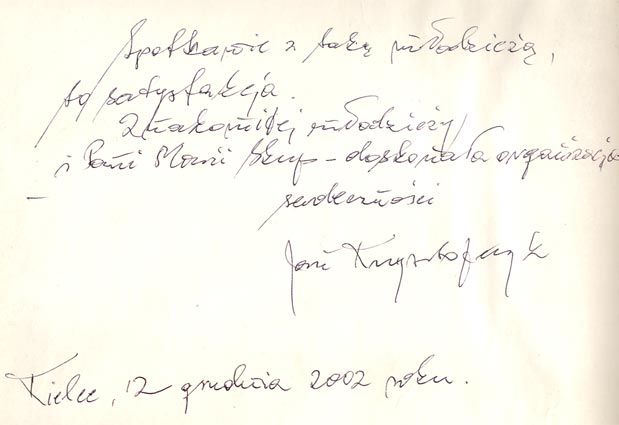 Spotkanie z taką młodzieżą,
to satysfakcja.
Znakomitej młodzieży
i Pani Marii Skup - doskonała organizacja
-
serdeczności
Krzysztofczyk
Kielce, 12 grudnia 2002 roku.